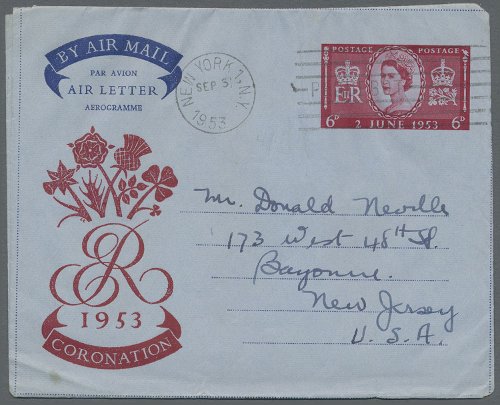 BY AIR MAIL
PAR AVION
AIR LETTER
AEROGRAMME
NEW YORK 1, N.Y.
SEP 5
1953
POSTAGE POSTAGE
E II R
2 JUNE 1953
6D 6D
Mr. Donald Neville
173 West 48th St.
Bayonne.
New Jersey
U.S.A.
ER
1953
CORONATION